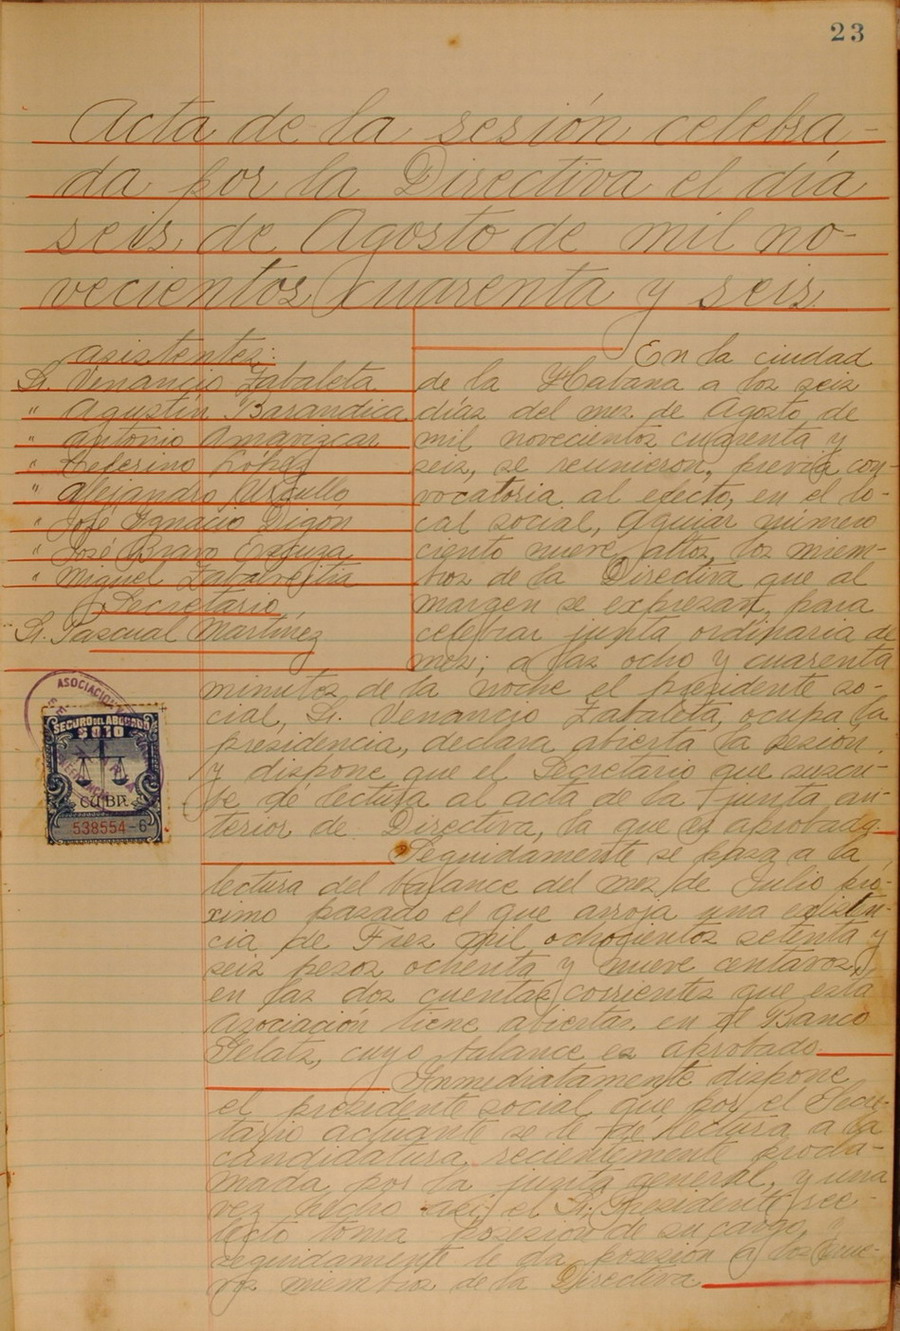 23
Acta de la sesión celebra-
da por la Directiva el día
seis de Agosto de mil no-
vecientos cuarenta y seis
asistentes:
Sr. Venancio Zabaleta
" Agustín Barandica
" Antonio Amarizcar
" Ceferino López
" Alejandro Urcullo
" José Ignacio Digón
" José Bravo
" Miguel
Secretario
Sr. Pascual Martínez
En la ciudad
de la Habana a los seis
días del mes de Agosto de
mil novecientos cuarenta y
seis, se reunieron, previa con-
vocatoria al efecto, en el lo-
cal social, Aguiar número
ciento nueve, altos, los miem-
bros de la Directiva que al
margen se expresan, para
celebrar junta ordinaria de
mes; a las ocho y cuarenta
minutos de la noche el presidente so-
cial, Sr. Venancio Zabaleta, ocupa la
presidencia, declara abierta la sesión
y dispone que el Secretario que suscri-
be dé lectura al acta de la junta an-
terior de Directiva, la que es aprobada.
Seguidamente se pasa a la
lectura del balance del mes de Julio pró-
ximo pasado el que arroja una existen-
cia de Trez mil ochocientos setenta y
seis pesos ochenta y nueve centavos,
en las dos cuentas corrientes que esta
Asociación tiene abiertas en el Banco
Gelats, cuyo balance es aprobado.
Inmediatamente dispone
el presidente social que por el Secre-
tario actuante se le dé lectura a la
candidatura recientemente procla-
mada por la junta general, y una
vez hecho así, el Sr. Presidente ree-
lecto toma posesión de su cargo, y
seguidamente le da posesión a los nue-
vos miembros de la Directiva
ASOCIACION
SEGURO DEL ABOGADO
$0.10
CUBA
538554-6